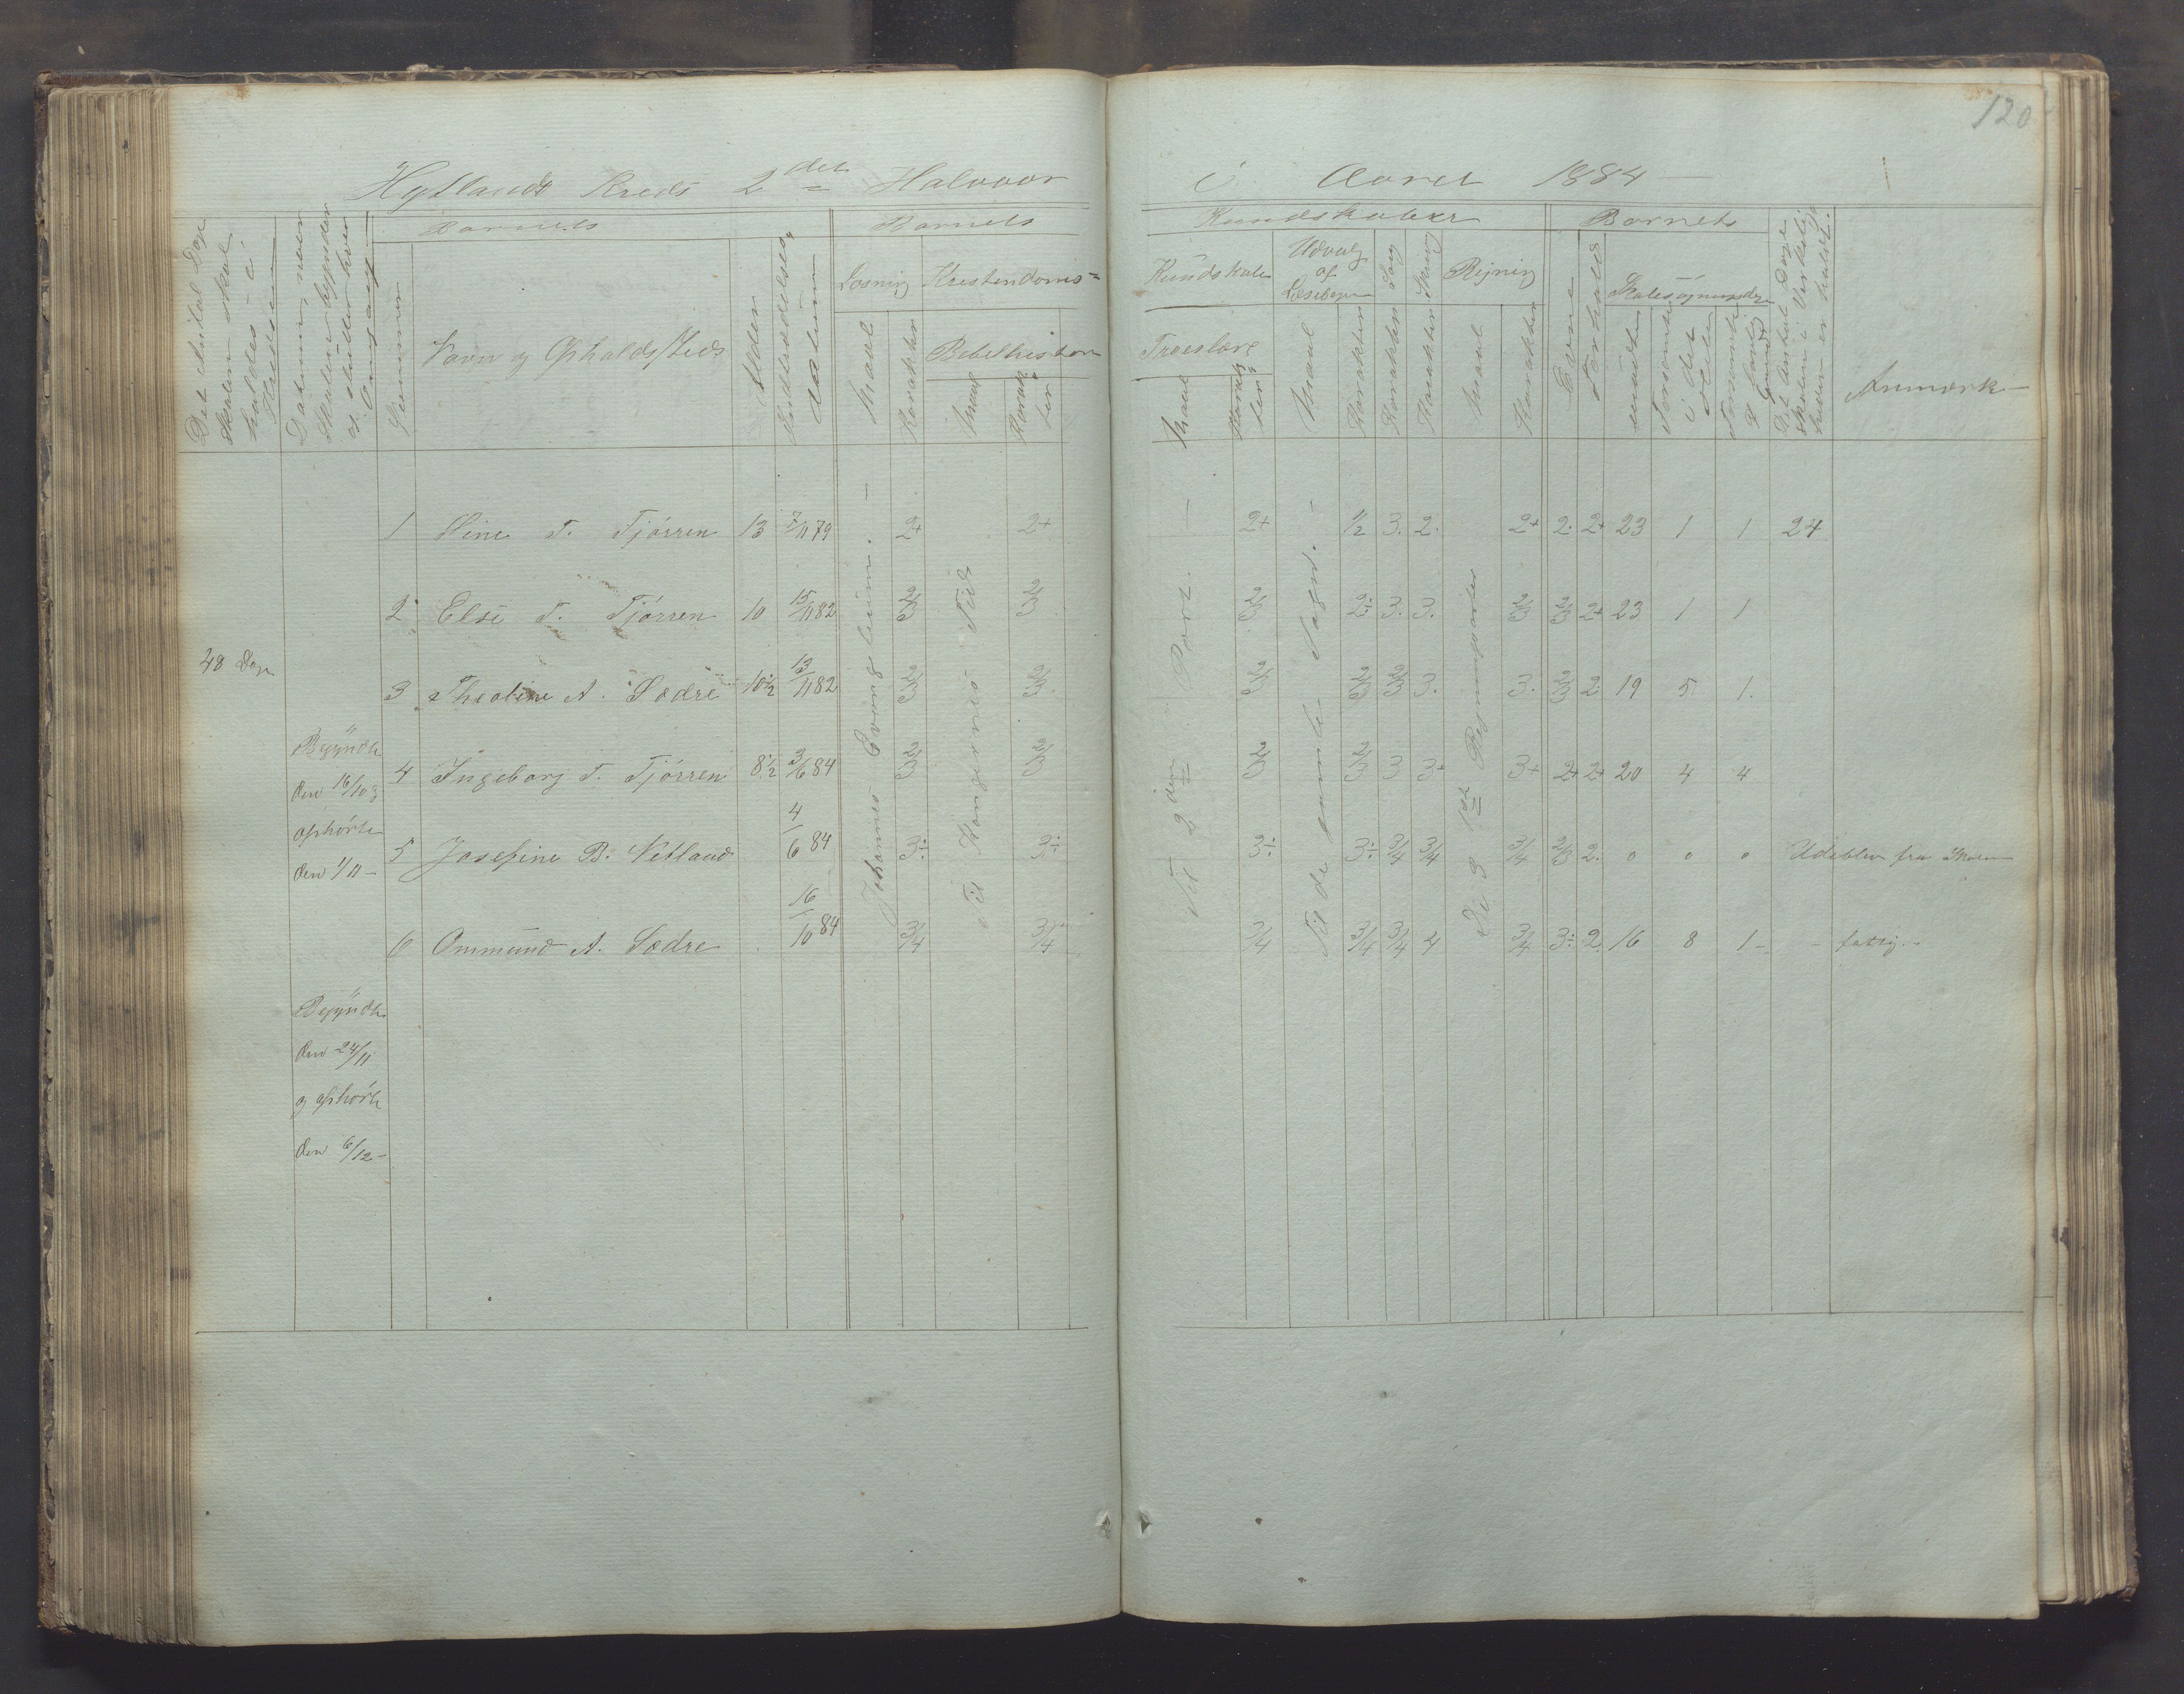 120
Hytlands Kreds 2det Halvaar i Aaret 1884
Det Antal Dage Skolen skal holdes i Kredsen
Datum, naar Skolen begynder og slutter hver Omgang
Nummer
Barnets
Navn og Opholdssted
Alder
Indtrædelses datum
Barnets Kundskaber
Læsning
Maal
Karakter
Kristendoms- Kundskab
Bibelhistorie
Maal
Karakter
Troeslære
Maal
Karakter
Udvalg af Læsebogen
Maal
Karakter
Sang
Karakter
Skriv
Karakter
Regning
Maal
Karakter
Barnets
Evne
Forhold
Skolesøgningsdage
mødte
forsømte i det Hele
forsømte af lovlig Grund
Det Antal Dage Skolen i Virkelig heden er holdt.
Anmærk-
48 Dage
Begyndte
den 16/10 og
ophørte
den 1/11 -
Begyndte
den 24/11
og ophørte
den 6/12 -
Johannes Evangelium. -
Til Kongernes Tid
Til 2den Part. -
Til de gamle Sagn. -
De 9 1ste Regningsarter
1 Stine T. Tjørren 13 7/11 79 2+ 2+ 2+ 1/2 3. 2. 2+ 2. 2+ 23 1 1 24
2 Else T. Tjørren 10 15/11 82 2/3 2/3 2/3 2÷ 3. 3. 2/3 2/3 2+ 23 1 1
3 Theoline A. Sædre 10 1/2 13/11 82 2/3 2/3 2/3 2/3 2/3 3. 3. 2/3 2 19 5 1.
4 Ingeborg T. Tjørren 8 1/2 3/6 84 2/3 2/3 2/3 2/3 3 3+ 3+ 2+ 2+ 20 4 4
5 Josefine B. Netland 4/6 84 3÷ 3÷ 3÷ 3÷ 3/4 3/4 3/4 2/3 2. 0 0 0 Udebleven fra Skolen
6 Ommund A. Sædre 16/10 84 3/4 3/4 3/4 3/4 3/4 4 3/4 3÷ 2 16 8 1 - - fattig. -